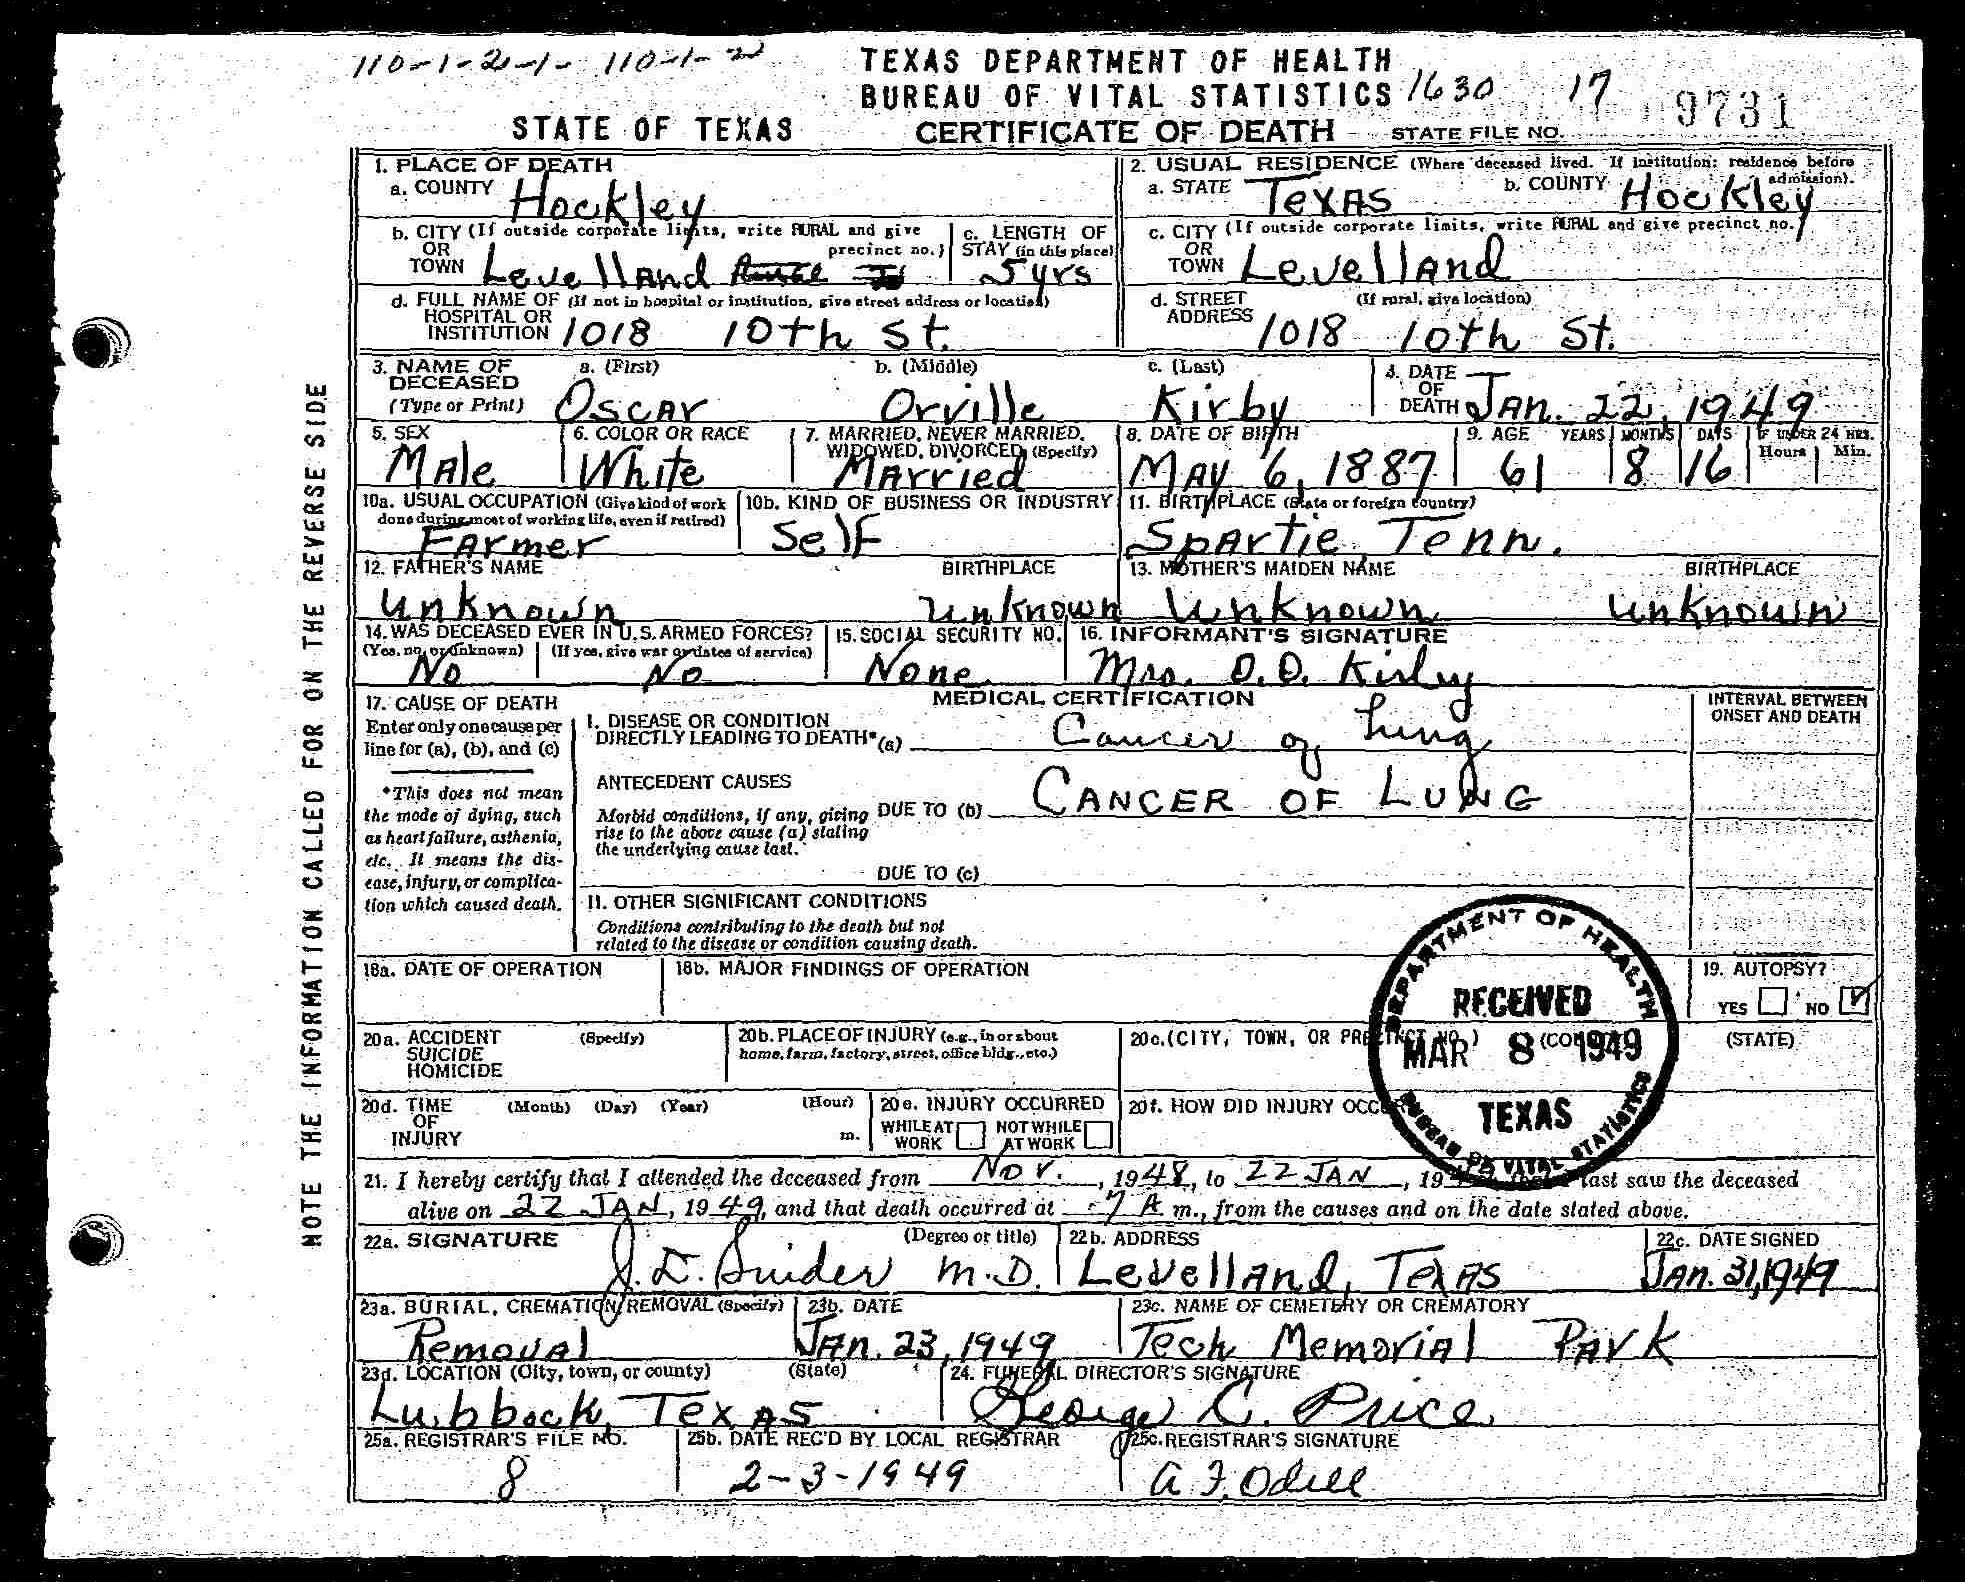 110-1-2-1- 110-1-2
TEXAS DEPARTMENT OF HEALTH
BUREAU OF VITAL STATISTICS 1630 17 9731
STATE OF TEXAS CERTIFICATE OF DEATH STATE FILE NO.
NOTE THE INFORMATION CALLED FOR ON THE REVERSE SIDE
1. PLACE OF DEATH
a. COUNTY Hockley
2. USUAL RESIDENCE (Where deceased lived. If institution: residence before admission).
a. STATE Texas b. COUNTY Hockley
b. CITY (If outside corporate limits, write RURAL and give precinct no.)
OR
TOWN Levelland
c. LENGTH OF
STAY (in this place)
5 yrs
c. CITY (If outside corporate limits, write RURAL and give precinct no.)
OR
TOWN Levelland
d. FULL NAME OF (If not in hospital or institution, give street address or location)
HOSPITAL OR
INSTITUTION 1018 10th St.
d. STREET (If rural, give location)
ADDRESS 1018 10th St.
3. NAME OF a. (First) b. (Middle) c. (Last)
DECEASED
(Type or Print) Oscar Orville Kirby
4. DATE
OF
DEATH Jan. 22, 1949
5. SEX
Male
6. COLOR OR RACE
White
7. MARRIED, NEVER MARRIED,
WIDOWED, DIVORCED (Specify)
Married
8. DATE OF BIRTH
May 6, 1887
9. AGE YEARS MONTHS DAYS IF UNDER 24 HRS.
Hours Min.
61 8 16
10a. USUAL OCCUPATION (Give kind of work
done during most of working life, even if retired)
Farmer
10b. KIND OF BUSINESS OR INDUSTRY
Self
11. BIRTHPLACE (State or foreign country)
Spartie, Tenn.
12. FATHER'S NAME BIRTHPLACE
unknown unknown
13. MOTHER'S MAIDEN NAME BIRTHPLACE
unknown unknown
14. WAS DECEASED EVER IN U.S. ARMED FORCES?
(Yes, no, or unknown) (If yes, give war or dates of service)
No No
15. SOCIAL SECURITY NO.
None
16. INFORMANT'S SIGNATURE
Mrs. O.O. Kirby
17. CAUSE OF DEATH
Enter only one cause per
line for (a), (b), and (c)
*This does not mean
the mode of dying, such
as heart failure, asthenia,
etc. It means the dis-
ease, injury, or complica-
tion which caused death.
MEDICAL CERTIFICATION
INTERVAL BETWEEN
ONSET AND DEATH
I. DISEASE OR CONDITION
DIRECTLY LEADING TO DEATH* (a) Cancer of lung
ANTECEDENT CAUSES
Morbid conditions, if any, giving
rise to the above cause (a) stating
the underlying cause last.
DUE TO (b) CANCER OF LUNG
DUE TO (c)
11. OTHER SIGNIFICANT CONDITIONS
Conditions contributing to the death but not
related to the disease or condition causing death.
18a. DATE OF OPERATION
18b. MAJOR FINDINGS OF OPERATION
19. AUTOPSY?
YES NO
DEPARTMENT OF HEALTH
RECEIVED
MAR 8 1949
TEXAS
BUREAU OF VITAL STATISTICS
20a. ACCIDENT (Specify)
SUICIDE
HOMICIDE
20b. PLACE OF INJURY (e.g., in or about
home, farm, factory, street, office bldg., etc.)
20c. (CITY, TOWN, OR PRECINCT NO.) (COUNTY) (STATE)
20d. TIME (Month) (Day) (Year) (Hour)
OF
INJURY m.
20e. INJURY OCCURRED
WHILE AT WORK NOT WHILE AT WORK
20f. HOW DID INJURY OCCUR?
21. I hereby certify that I attended the deceased from Nov., 1948, to 22 JAN, 19 that I last saw the deceased
alive on 22 JAN, 1949, and that death occurred at 7 A m., from the causes and on the date stated above.
22a. SIGNATURE (Degree or title)
M.D.
22b. ADDRESS
Levelland, Texas
22c. DATE SIGNED
Jan. 31, 1949
23a. BURIAL, CREMATION, REMOVAL (Specify)
Removal
23b. DATE
Jan. 23, 1949
23c. NAME OF CEMETERY OR CREMATORY
Tech Memorial Park
23d. LOCATION (City, town, or county) (State)
Lubbock, Texas
24. FUNERAL DIRECTOR'S SIGNATURE
George C. Price
25a. REGISTRAR'S FILE NO.
8
25b. DATE REC'D BY LOCAL REGISTRAR
2-3-1949
25c. REGISTRAR'S SIGNATURE
A F. Odell